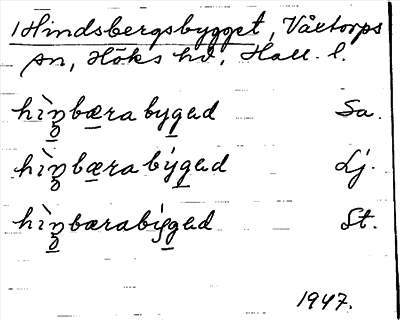 Hindsbergsbygget, Våxtorps
sn, Höks hd, Hall. l.
hìn̥bærabyged Sa.
hìn̥bærabýged Lj.
hìn̥bærabýged St.
1947.